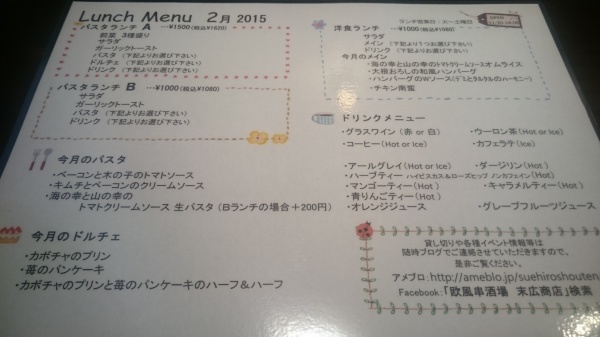 Lunch Menu 2月 2015
パスタランチ A ・・・¥1500(税込¥1620)
前菜 3種盛り
サラダ
ガーリックトースト
パスタ (下記よりお選び下さい)
ドルチェ (下記よりお選び下さい)
ドリンク (下記よりお選び下さい)
パスタランチ B ・・・¥1000(税込¥1080)
サラダ
ガーリックトースト
パスタ (下記よりお選び下さい)
ドリンク (下記よりお選び下さい)
今月のパスタ
・ベーコンと木の子のトマトソース
・キムチとベーコンのクリームソース
・海の幸と山の幸の
トマトクリームソース 生パスタ (Bランチの場合+200円)
今月のドルチェ
・カボチャのプリン
・苺のパンケーキ
・カボチャのプリンと苺のパンケーキのハーフ&ハーフ
ランチ営業日:火~土曜日
OPEN
洋食ランチ ・・・¥1000(税込¥1080)
サラダ
メイン (下記より1つお選び下さい)
ドリンク (下記よりお選び下さい)
今月のメイン
・海の幸と山の幸のトマトクリームソースオムライス
・大根おろしの和風ハンバーグ
・ハンバーグのWソース(デミとタルタルのハーモニー)
・チキン南蛮
ドリンクメニュー
・グラスワイン (赤 or 白) ・ウーロン茶(Hot or Ice)
・コーヒー(Hot or Ice) ・カフェラテ(Hot or Ice)
・アールグレイ(Hot or Ice) ・ダージリン(Hot)
・ハーブティー ハイビスカス&ローズヒップ ノンカフェイン(Hot)
・マンゴーティー(Hot) ・キャラメルティー(Hot)
・青りんごティー(Hot)
・オレンジジュース ・グレープフルーツジュース
貸し切りや各種イベント情報等は
随時ブログでご連絡させていただきますので、
是非ご覧ください。
アメブロ:http://ameblo.jp/suehiroshouten
Facebook:「欧風串酒場 末広商店」検索